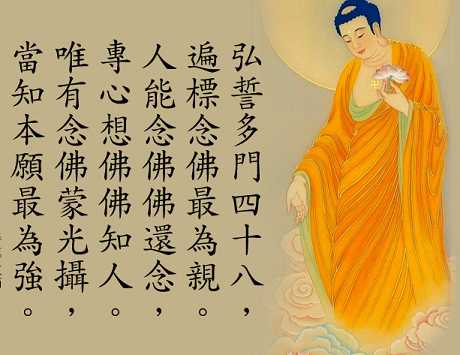 弘誓多門四十八，
遍標念佛最為親。
人能念佛佛還念，
專心想佛佛知人。
唯有念佛蒙光攝，
當知本願最為強。